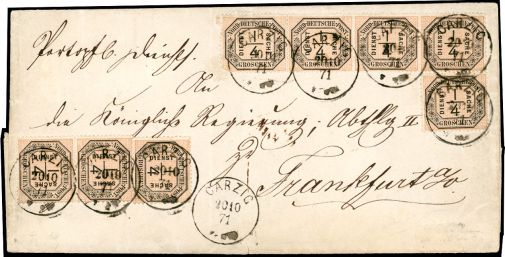 NORDDEUTSCHE POST
DIENST SACHE
1/4
GROSCHEN
Portopfl. Dienstf.
An
die Königliche Regierung, Abthlg II
zu
Frankfurt a/o
CARZIG
20 10
71